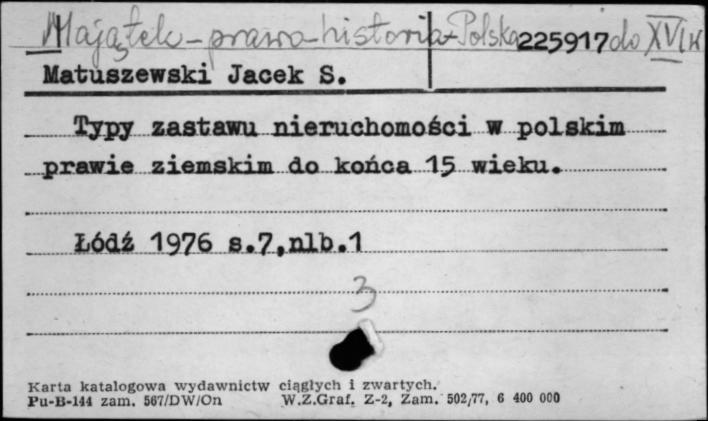 Majątek - prawo - historia - Polska 225917 do XVI w
Matuszewski Jacek S.
Typy zastawu nieruchomości w polskim
prawie ziemskim do końca 15 wieku.
Łódź 1976 s.7,nlb.1
3
Karta katalogowa wydawnictw ciągłych i zwartych.
Pu-B-144 zam. 567/DW/On W.Z.Graf. Z-2, Zam. 502/77, 6 400 000